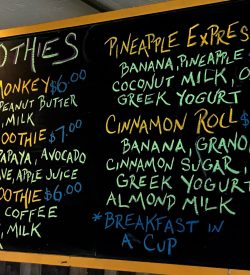 OTHIES
MONKEY $6.00
PEANUT BUTTER
, MILK
OOTHIE $7.00
PAPAYA, AVOCADO
AVE, APPLE JUICE
OOTHIE $6.00
COFFEE
, MILK
PINEAPPLE EXPRES
BANANA, PINEAPPLE
COCONUT MILK, O
GREEK YOGURT
CINNAMON ROLL $
BANANA, GRANO
CINNAMON SUGAR,
GREEK YOGURT
ALMOND MILK
*BREAKFAST IN
A CUP